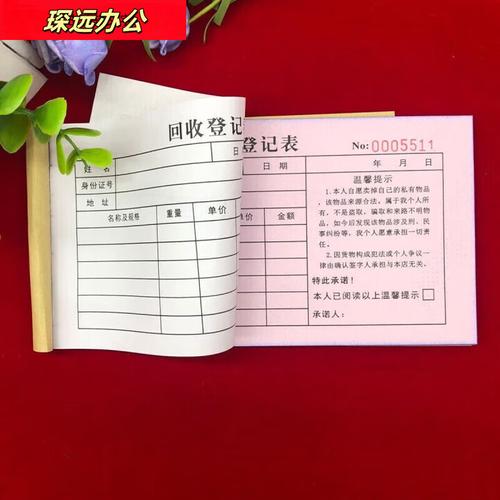 琛远办公
回收登记
登记表
No: 0005511
姓 名
日
日 期
年 月 日
身份证号
地 址
名称及规格
重量
单价
金额
温馨提示
1.本人自愿卖掉自己的私有物品,
该物品来源合法,属于我个人所
有,不是盗取,骗取和来路不明物
品,如今后发现该物品涉及刑、民
事纠纷等,我个人愿意承担一切责
任。
2.因货物构成犯法或个人争议一
律由确认签字人承担与本店无关。
特此承诺!
本人已阅读以上温馨提示
承诺人: